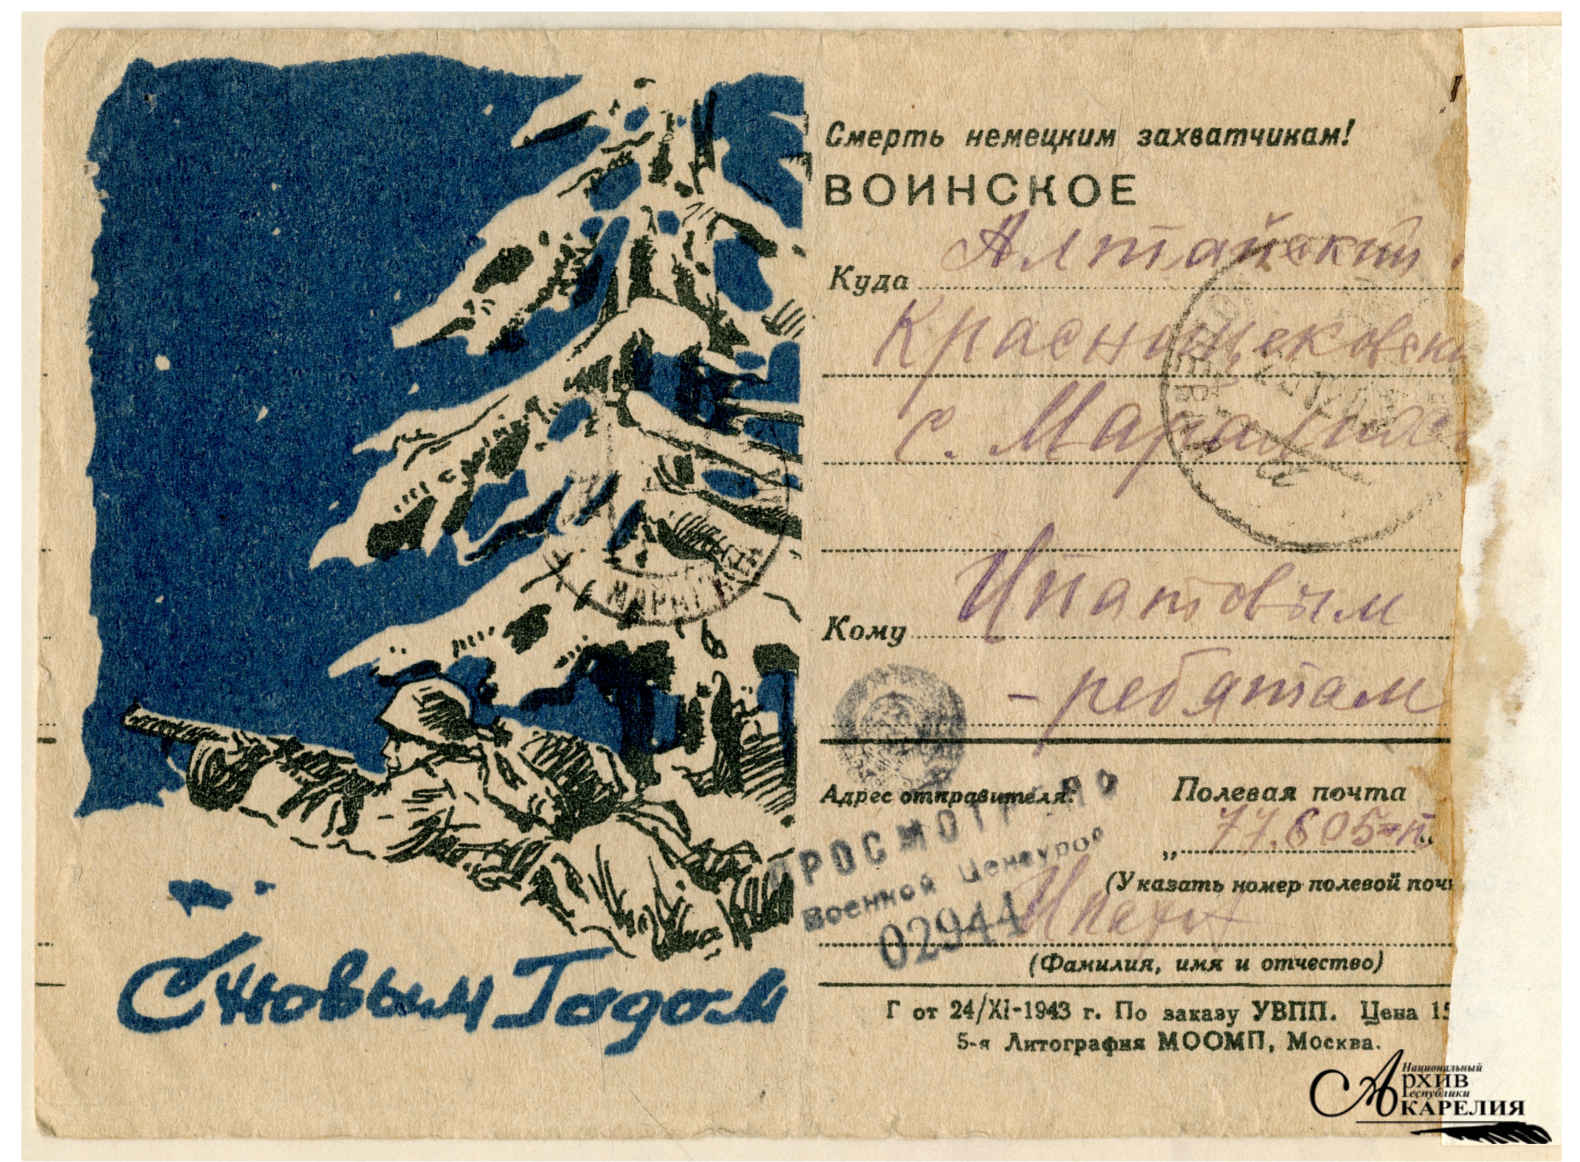 С новым Годом
Смерть немецким захватчикам!
ВОИНСКОЕ
Куда Алтайский
Краснощековски
с. Маралиха
Кому Ипатовым
- ребятам
Адрес отправителя: Полевая почта
„ 77.605-п
(Указать номер полевой поч
Ипатов
(Фамилия, имя и отчество)
Г от 24/XI-1943 г. По заказу УВПП. Цена 15
5-я Литография МООМП, Москва.
ПРОСМОТРЕНО
Военной Цензурой
02944
Национальный
АРХИВ
Республики
КАРЕЛИЯ